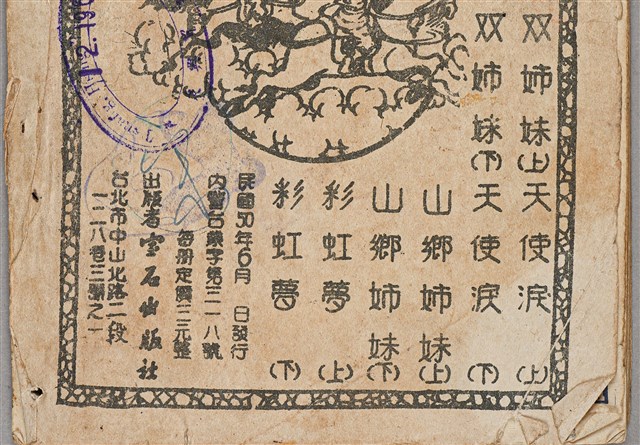 双姉妹(上)天使淚(上)
双姉妹(下)天使淚(下)
山鄉姉妹(上)
山鄉姉妹(下)
彩虹夢(上)
彩虹夢(下)
民國50年6月 日發行
內警台業字第三一八號
每册定價三元整
出版者雲石出版社
台北市中山北路二段
一二八巷三號之一